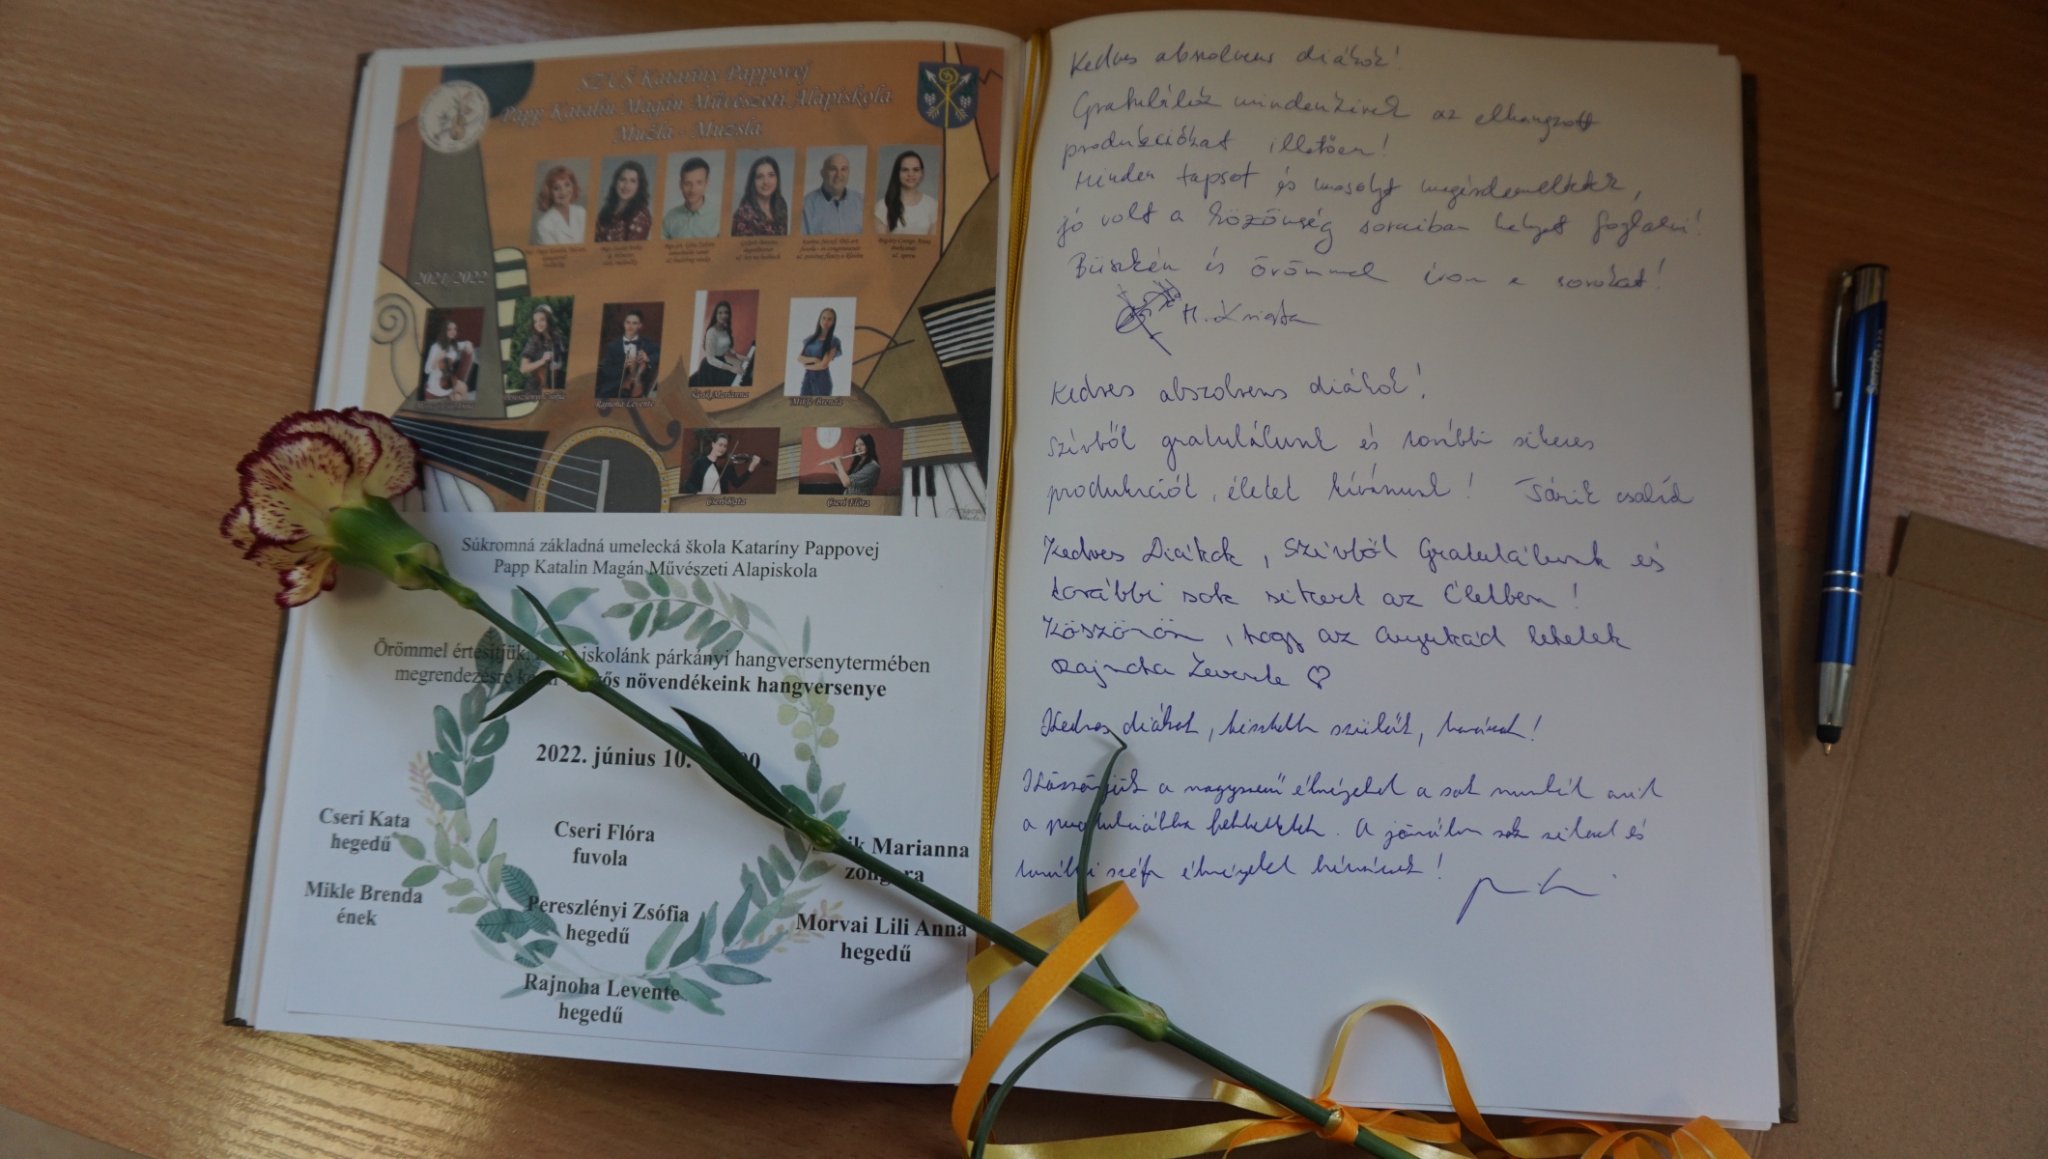 SZUŠ Kataríny Pappovej
Papp Katalin Magán Művészeti Alapiskola
Mužla - Muzsla
2021/2022
Rajnoha Levente
Mikle Brenda
Cseri Kata
Cseri Flóra
Súkromná základná umelecká škola Kataríny Pappovej
Papp Katalin Magán Művészeti Alapiskola
Örömmel értesítjük, iskolánk párkányi hangversenytermében
megrendezésre növendékeink hangversenye
2022. június 10.
Cseri Kata
hegedű
Cseri Flóra
fuvola
Marianna
zongora
Mikle Brenda
ének
Pereszlényi Zsófia
hegedű
Morvai Lili Anna
hegedű
Rajnoha Levente
hegedű
Kedves abszolvens diákok!
Gratulálok mindenkinek az elhangzott
produkciókat illetően!
Minden tapsot és mosolyt megérdemeltetek,
jó volt a közönség soraiban helyet foglalni!
Büszkén és örömmel írom e sorokat!
Kedves abszolvens diákok!
Szívből gratulálunk és további sikeres
produkciót, életet kívánunk! család
Kedves Diákok, Szívből Gratulálunk és
további sok sikert az Életben!
Köszönöm, hogy az anyukád lehetek
Rajnoha Levente ♡
Kedves diákok, tisztelt szülők, tanárok!
Köszönjük a nagyszerű élményeket a sok munkát amit
a produkciókba fektettetek. A jövőben sok sikert és
további szép élményeket kívánunk!